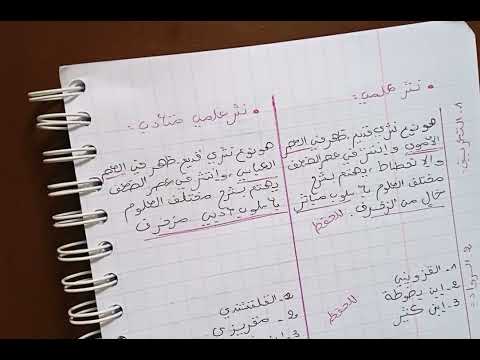 • نثر علمي:
1. التعريف:
هو نوع نثري قديم، ظهر في العصر
الأموي وانتشر في عصر الضعف
والانحطاط، يهتم بشرح
مختلف العلوم بأسلوب مباشر
خال من الزخرف. للحفظ
2. الرواد:
1- القزويني
2- ابن بطوطة
3- ابن كثير
للحفظ
• نثر علمي متأدب:
هو نوع نثري قديم، ظهر في العصر
العباسي، وانتشر في عصر الضعف
يهتم بشرح مختلف العلوم
بأسلوب أدبي مزخرف
1- القلقشندي
2- مقريزي